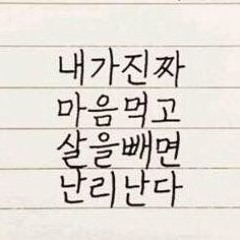 내가진짜
마음먹고
살을빼면
난리난다